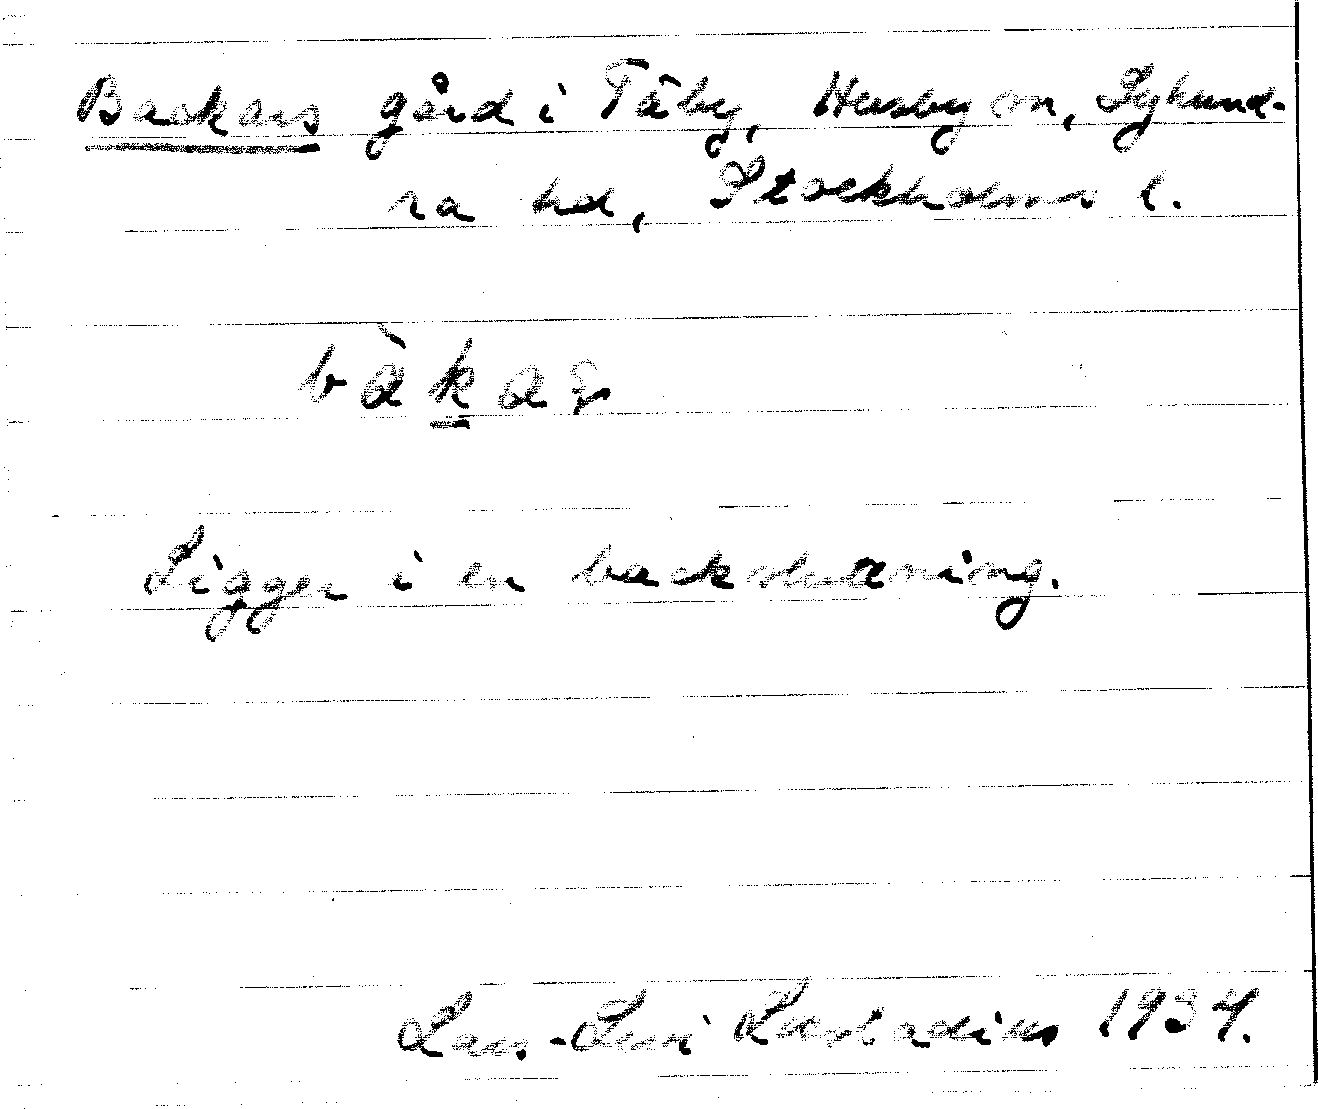 Backars gård i Täby, Husby sn, Lyhund-
ra hd, Stockholms l.
bàkaʂ
Ligger i en backsluttning.
Lars-Levi Læstadius 1934.